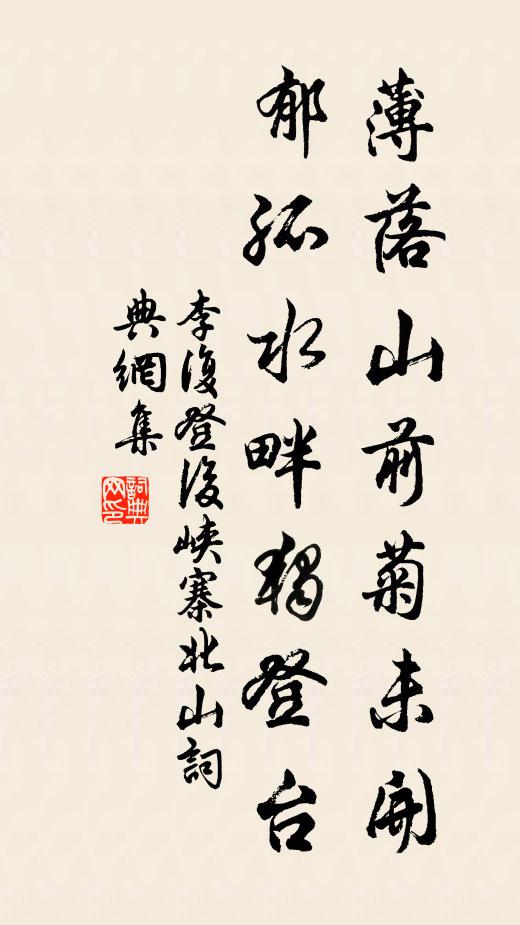 薄落山前菊未開
郁孤水畔独登台
李復登後峽寨北山詞
典網集
詞典
网印